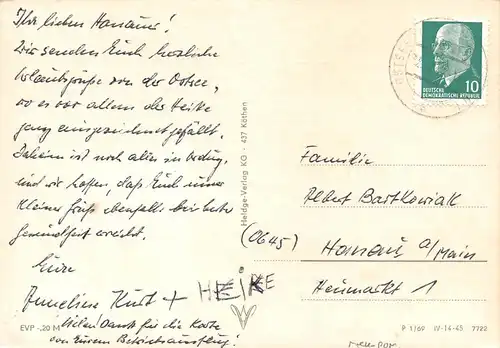 Ihr lieben Hanauer!
Wir senden Euch herzliche
Urlaubsgrüße von der Ostsee,
wo es vor allem der Heike
ganz ausgezeichnet gefällt.
Daheim ist noch alles in Ordnung,
und wir hoffen, daß Euch unser
kleiner Gruß ebenfalls bei bester
Gesundheit erreicht.
Eure
Anneliese Kurt + HEIKE
Vielen Dank für die Karte
von Eurem Betriebsausflug!
EVP -,20 M
Heldge-Verlag KG - 437 Köthen
10
DEUTSCHE
DEMOKRATISCHE REPUBLIK
Familie
Albert Bartkowiak
(0645) Hanau a/Main
Heumarkt 1
P 1/69 IV-14-45 7722